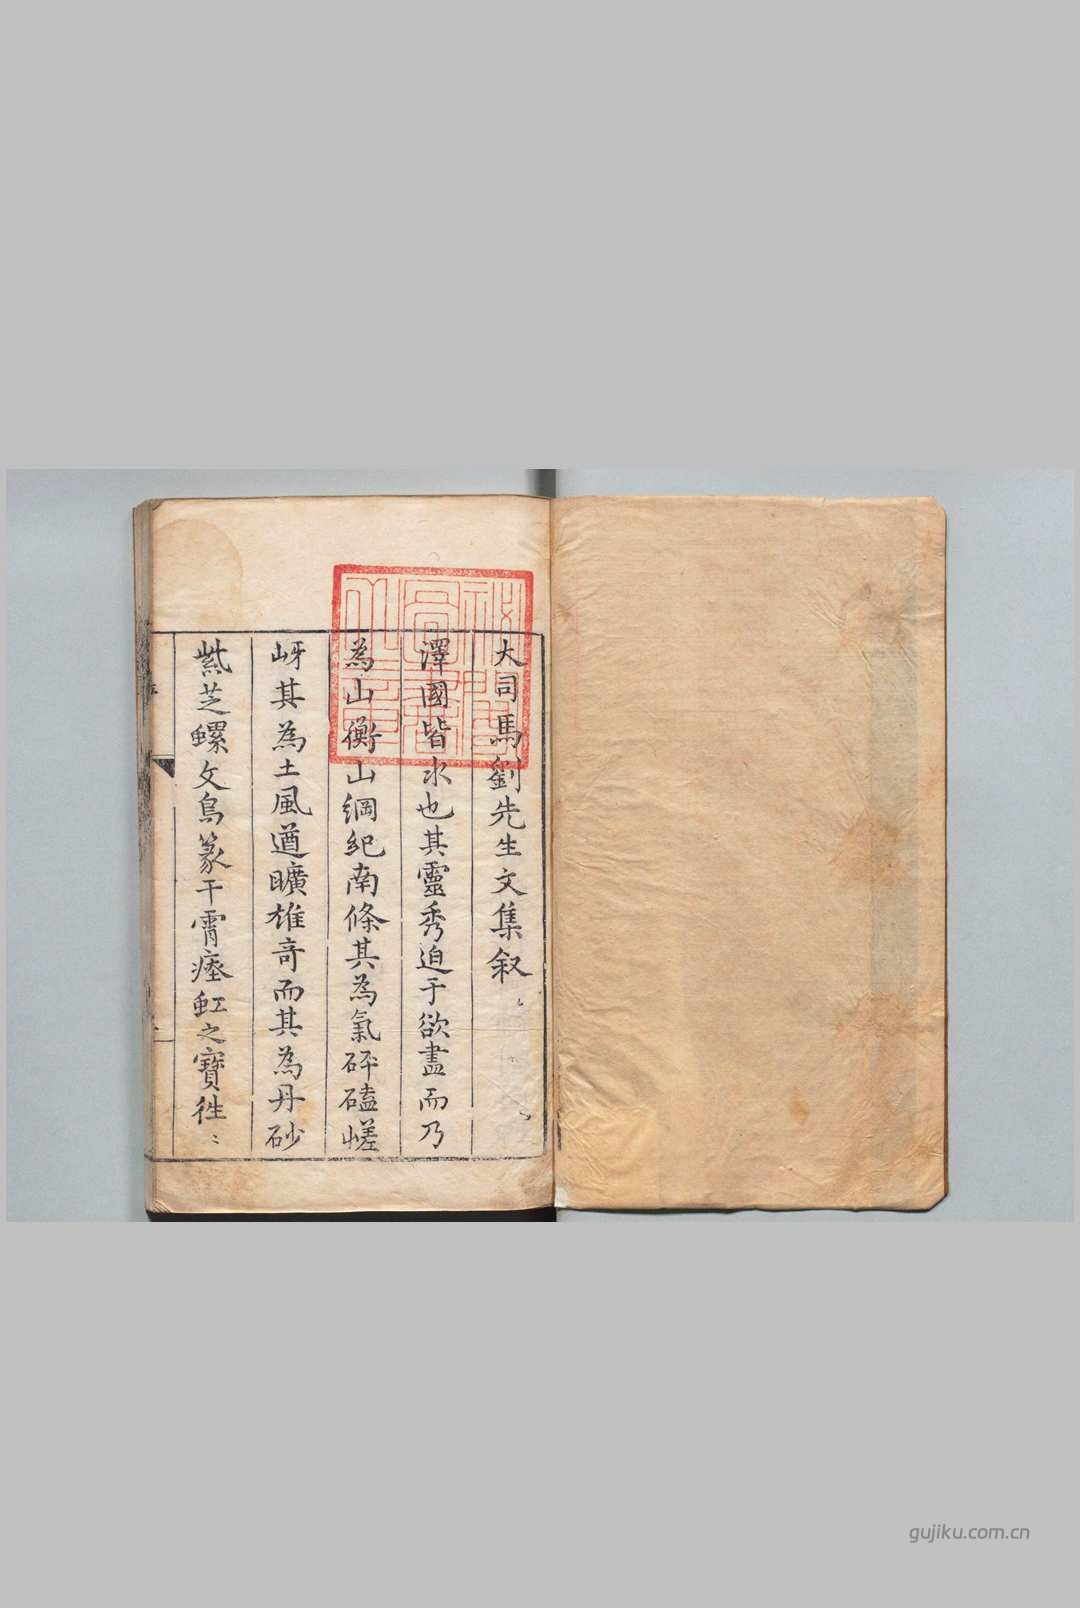 大司馬劉先生文集叙
澤國皆水也其靈秀迫于欲盡而乃
為山衡山綱紀南條其為氣砰磕嵯
岈其為土風遒曠雄奇而其為丹砂
紫芝螺文鳥篆干霄瘞虹之寶徃〻
gujiku.com.cn